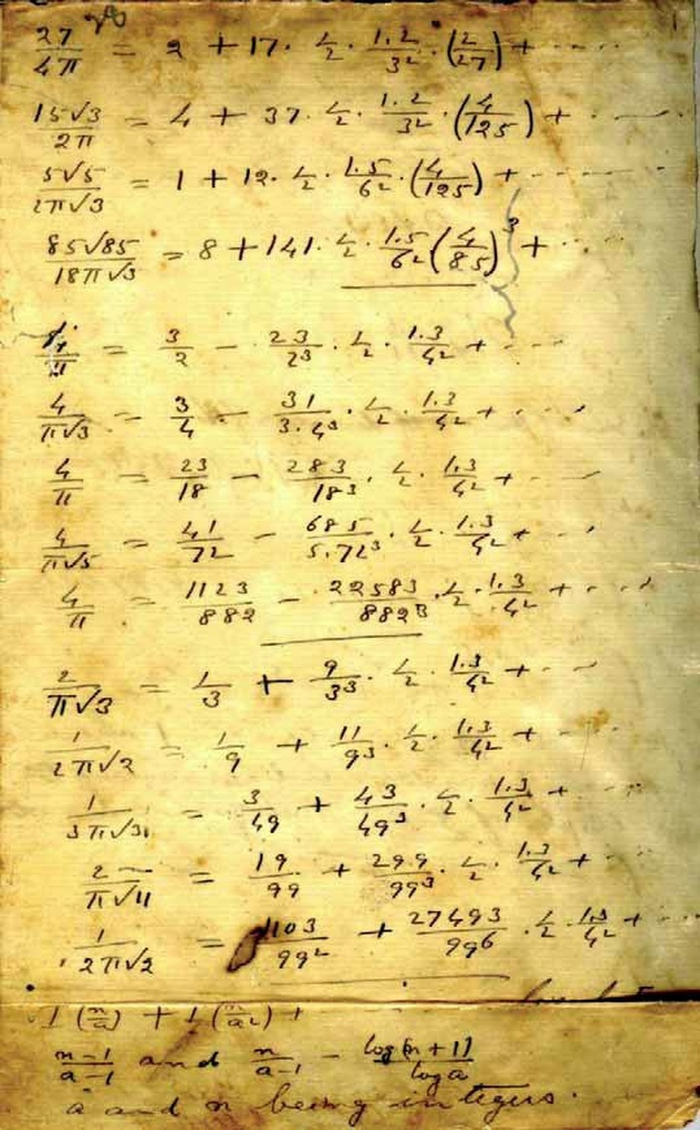 27/4π = 2 + 17 · 1/2 · 1.2/3² · (2/27) + ·····
15√3/2π = 4 + 37 · 1/2 · 1.2/3² · (4/125) + ·····
5√5/2π√3 = 1 + 12 · 1/2 · 1.5/6² · (4/125) + ·····
85√85/18π√3 = 8 + 141 · 1/2 · 1.5/6² (4/85)³ + ···
4/π = 3/2 − 23/2³ · 1/2 · 1.3/4² + ···
4/π√3 = 3/4 − 31/3.4³ · 1/2 · 1.3/4² + ···
4/π = 23/18 − 283/18³ · 1/2 · 1.3/4² + ···
4/π√5 = 41/72 − 685/5.72³ · 1/2 · 1.3/4² + ···
4/π = 1123/882 − 22583/882³ · 1/2 · 1.3/4² + ···
2/π√3 = 1/3 + 9/3³ · 1/2 · 1.3/4² + ···
1/2π√2 = 1/9 + 11/9³ · 1/2 · 1.3/4² + ···
1/3π√3 = 3/49 + 43/49³ · 1/2 · 1.3/4² + ···
2/π√11 = 19/99 + 299/99³ · 1/2 · 1.3/4² + ···
1/2π√2 = 1103/99² + 27493/99⁶ · 1/2 · 1.3/4² + ···
1(n/a) + 1(n/a²) +
n−1/a−1 and n/a−1 − log(n+1)/log a
a and n being integers.